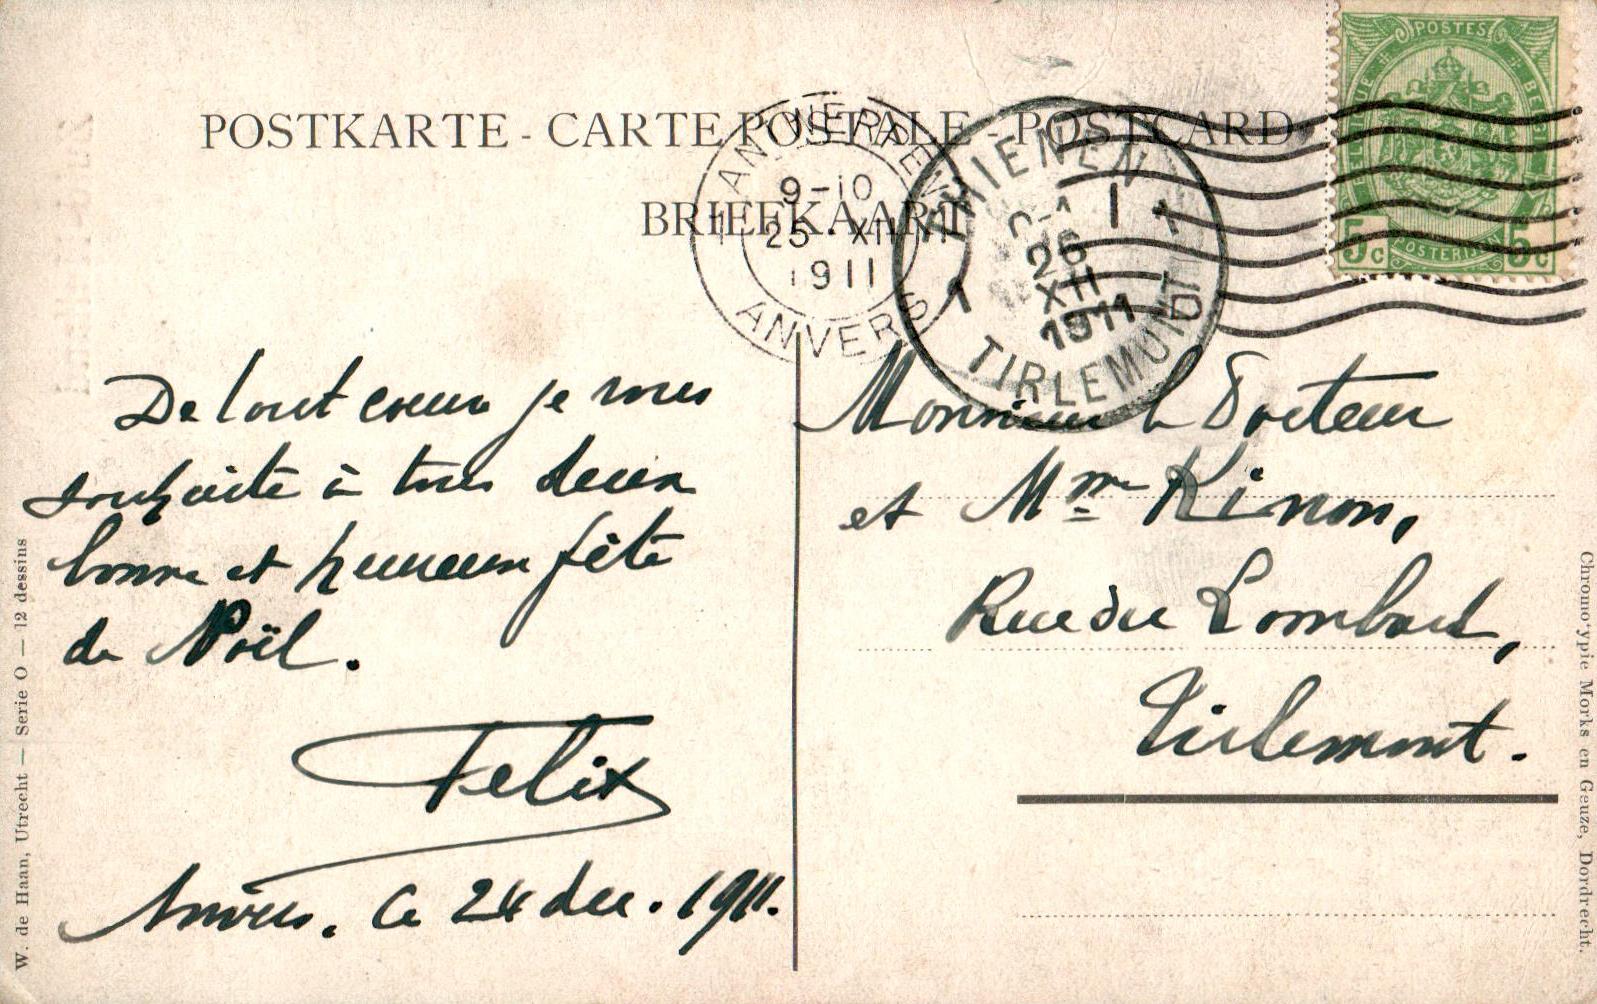 POSTKARTE - CARTE POSTALE - POSTCARD
BRIEFKAART
ANTWERPEN
9-10
25 XII
1911
ANVERS
THIENEN
26
XII
1911
TIRLEMONT
POSTES
5c POSTERIJEN 5c
De tout coeur je vous
souhaite à tous deux
bonne et heureuse fête
de Noël.
Felix
Anvers, ce 24 dec. 1911.
Monsieur le Docteur
et Mme Kinon,
Rue du Lombard,
Tirlemont.
W. de Haan, Utrecht — Serie O — 12 dessins
Chromo'ypie Morks en Geuze, Dordrecht.